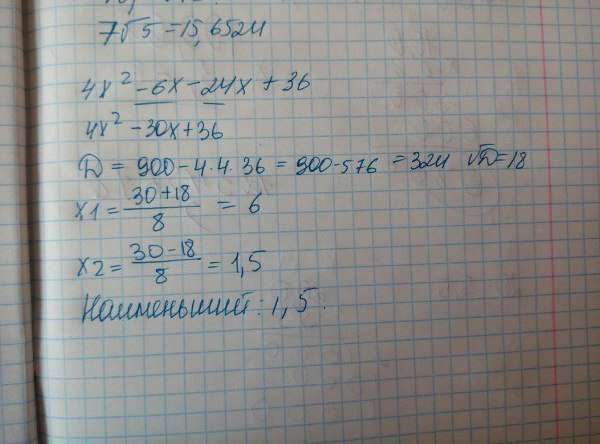 7√5 = 15,6524
4x² - 6x - 24x + 36
4x² - 30x + 36
D = 900 - 4·4·36 = 900 - 576 = 324 √D = 18
x1 = (30+18)/8 = 6
x2 = (30-18)/8 = 1,5
Наименьший: 1,5.